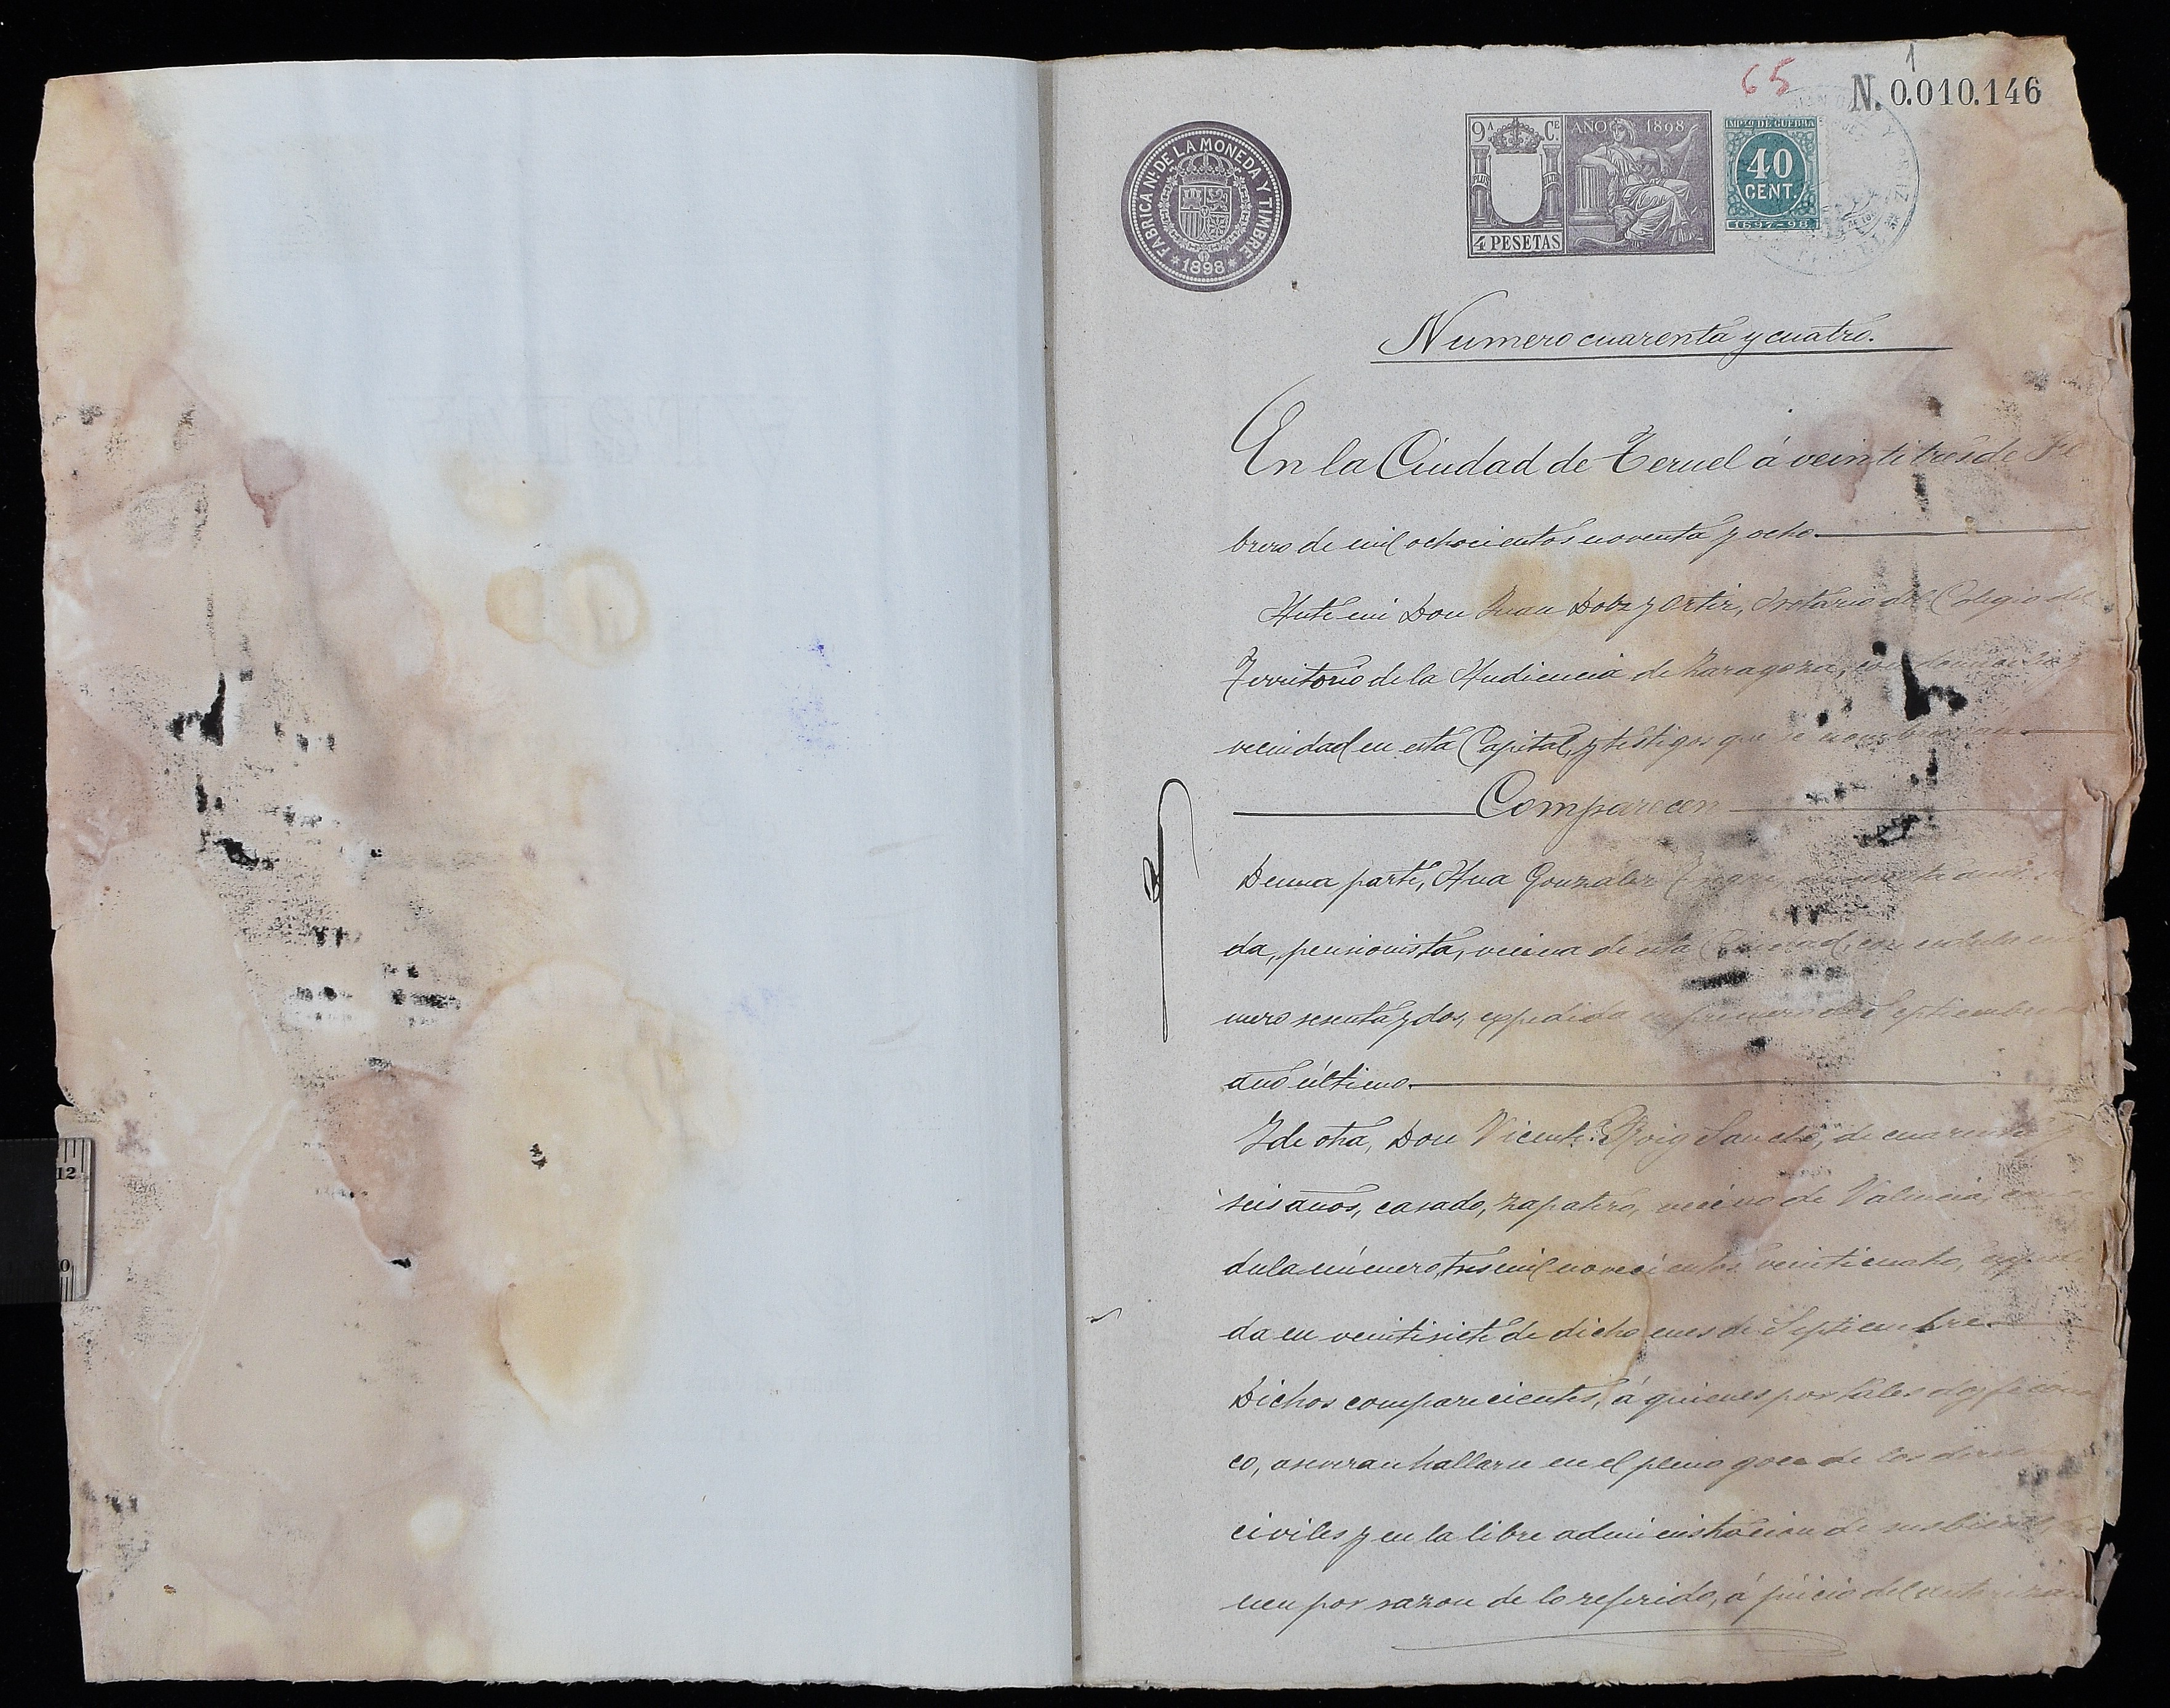 1
65
N. 0.010.146
FABRICA N.L DE LA MONEDA Y TIMBRE
* 1898 *
9.A C.E AÑO 1898
4 PESETAS
IMP.TO DE GUERRA
40
CENT.
1897-98
Numero cuarenta y cuatro.
En la Ciudad de Teruel á veintitres de Fe
brero de mil ochocientos noventa y ocho
Ante mi Don Juan Dobz y Ortiz, Notario del Colegio del
Territorio de la Audiencia de Zaragoza,
vecindad en esta Capital, y testigos que se nombrarán
Comparecen
De una parte, Ana González
da, pensionista, vecina de esta Ciudad, con
mero sesenta y dos, expedida en primero de Septiembre
año último.
Y de otra, Don Vicente Roig Sancho, de cuarenta y
seis años, casado, zapatero, vecino de Valencia,
dula número tres mil novecientos veinticuatro, expedi
da en veintisiete de dicho mes de Septiembre.
Dichos comparecientes, á quienes por tales doy fe conoz
co, aseveran hallarse en el pleno goce de los derechos
civiles y en la libre administracion de sus bienes,
nen por razon de lo referido, á juicio del autorizan
12